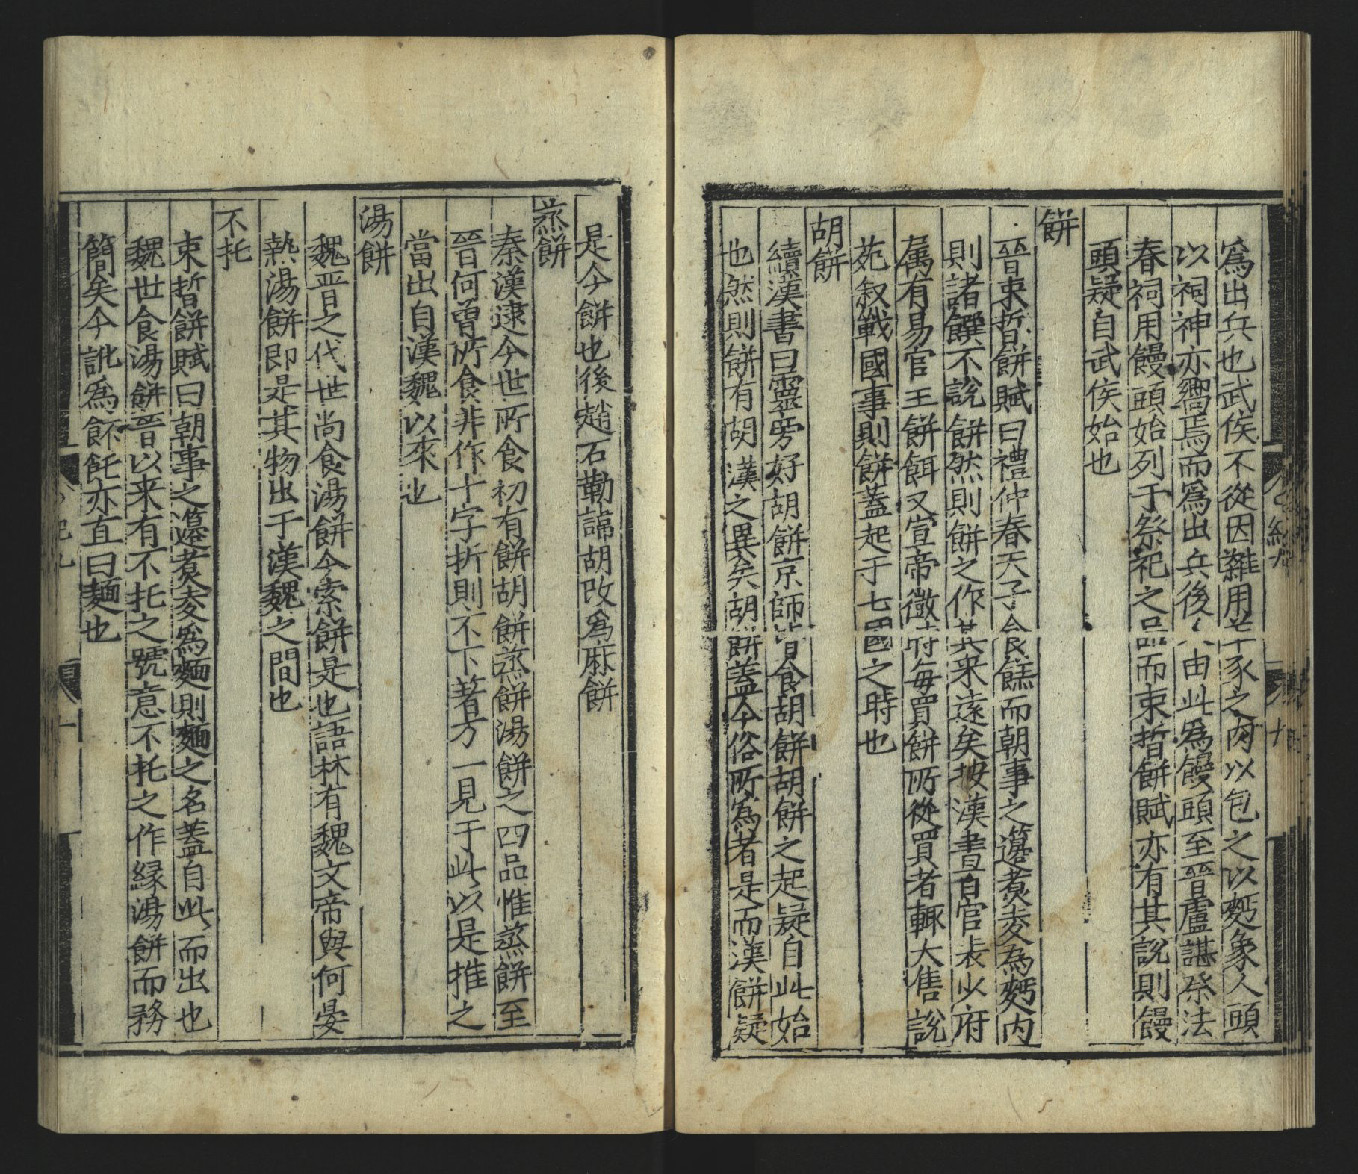 爲出兵也武侯不從因雜用羊豕之肉以包之以麪象人頭
以祠神亦嚮焉而爲出兵後人由此爲饅頭至晉盧諶祭法
春祠用饅頭始列于祭祀之品而束晳餅賦亦有其說則饅
頭疑自武侯始也
餅
晉束晳餅賦曰禮仲春天子食餻而朝事之籩煮麥為麪内
則諸饌不說餅然則餅之作其来遠矣按漢書百官表少府
属有易官王餅餌又宣帝微時每買餅所從買者輒大售說
苑叙戰國事則餅蓋起于七國之時也
胡餅
續漢書曰靈帝好胡餅京師皆食胡餅胡餅之起疑自此始
也然則餅有胡漢之異矣胡餅蓋今俗所爲者是而漢餅疑
是今餅也後趙石勒諱胡改爲麻餅
蒸餅
秦漢逮今世所食初有餅胡餅蒸餅湯餅之四品惟蒸餅至
晉何曾所食非作十字折則不下箸方一見于此以是推之
當出自漢魏以來也
湯餅
魏晋之代世尚食湯餅今索餅是也語林有魏文帝與何晏
熱湯餅即是其物出于漢魏之間也
不托
束晳餅賦曰朝事之籩煮麥爲麵則麵之名蓋自此而出也
魏世食湯餅晋以来有不托之號意不托之作緣湯餅而務
簡矣今訛爲飥亦直曰麵也